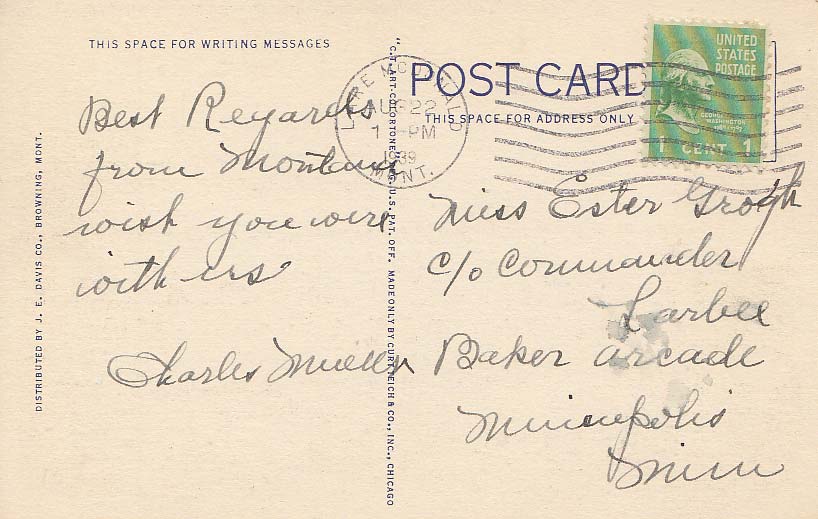 THIS SPACE FOR WRITING MESSAGES
Best Regards
from Montana
wish you were
with us
Charles
DISTRIBUTED BY J. E. DAVIS CO., BROWNING, MONT.
"C.T. ART-COLORTONE" REG. U.S. PAT. OFF. MADE ONLY BY CURT TEICH & CO., INC., CHICAGO
POST CARD
THIS SPACE FOR ADDRESS ONLY
LAKE MCDONALD
AUG 22
1 PM
1939
MONT.
UNITED
STATES
POSTAGE
GEORGE
WASHINGTON
CENT 1
Miss Ester
c/o Commander
Larbee
Baker Arcade
Minneapolis
Minn